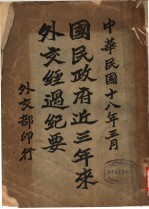 中華民國十八年三月
國民政府近三年來
外交經過紀要
外交部印行